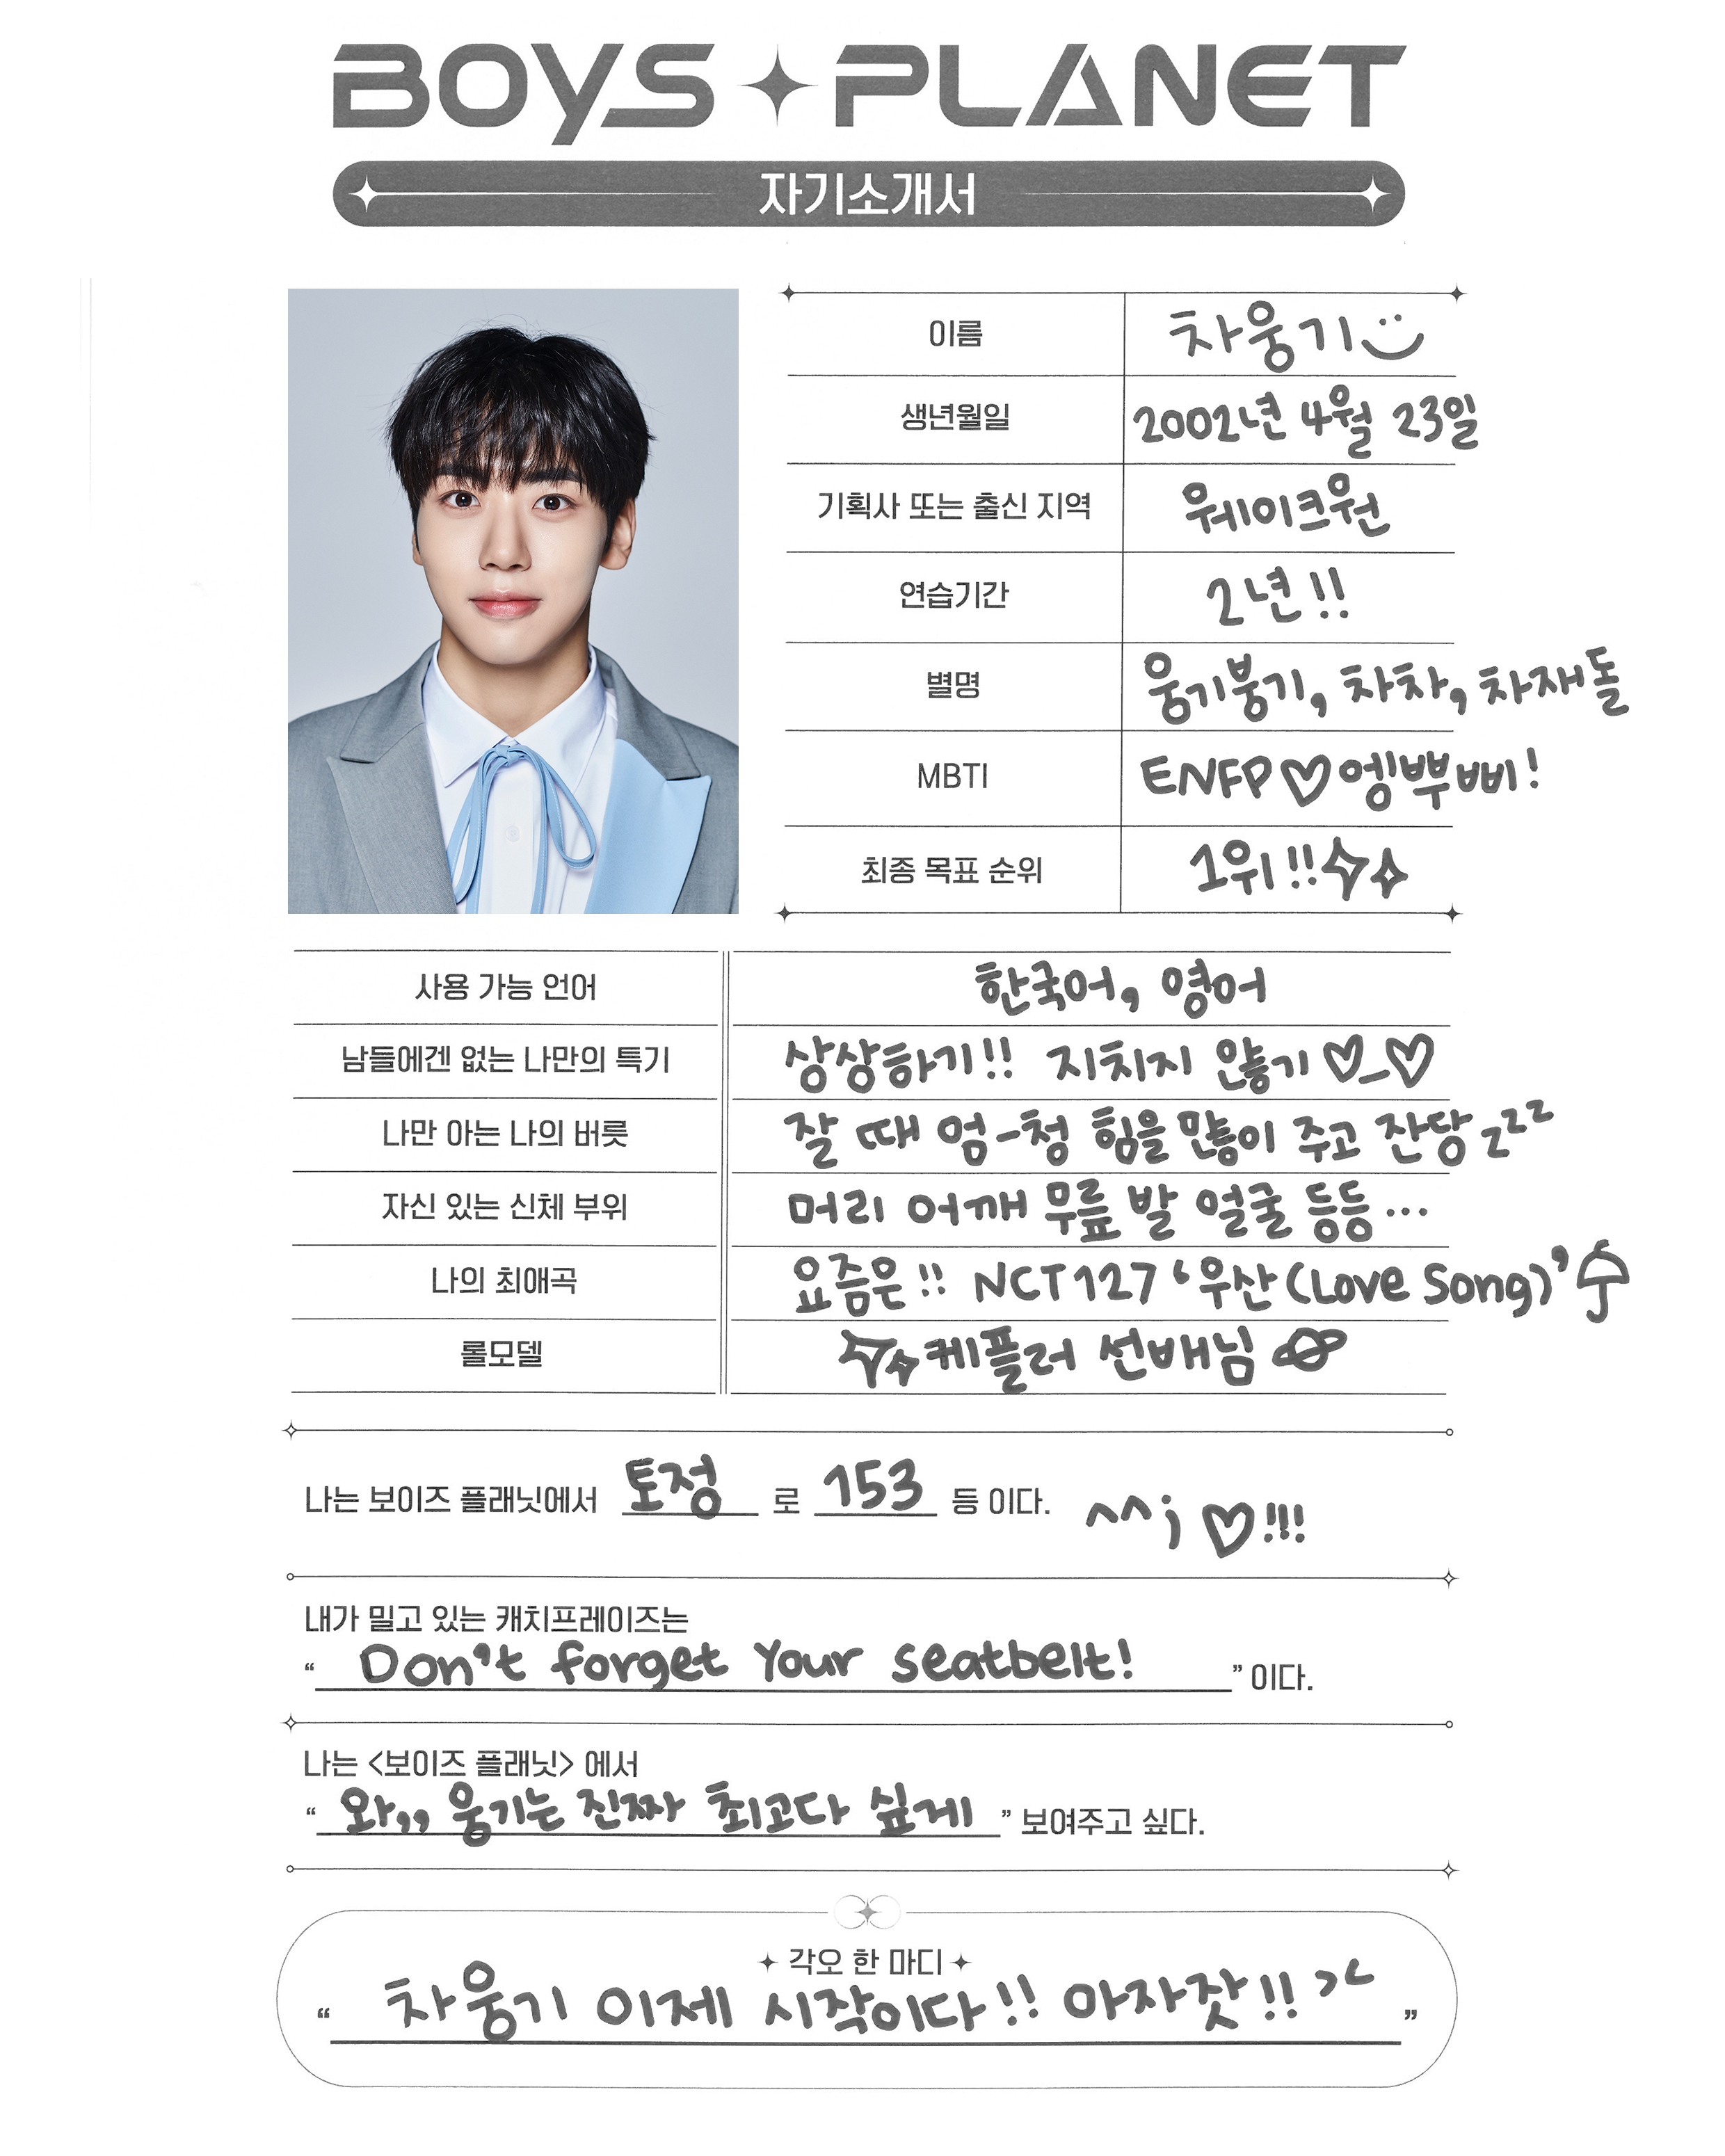 BOYS PLANET
자기소개서
이름 차웅기
생년월일 2002년 4월 23일
기획사 또는 출신 지역 웨이크원
연습기간 2년!!
별명 웅기붕기, 차차, 차재돌
MBTI ENFP♡엥뿌삐!
최종 목표 순위 1위!!
사용 가능 언어 한국어, 영어
남들에겐 없는 나만의 특기 상상하기!! 지치지 않기♡_♡
나만 아는 나의 버릇 잘 때 엄-청 힘을 많이 주고 잔당zzz
자신 있는 신체 부위 머리 어깨 무릎 발 얼굴 등등...
나의 최애곡 요즘은!! NCT127 '우산(Love Song)'
롤모델 케플러 선배님
나는 보이즈 플래닛에서 토정 로 153 등 이다. ^^; ♡!!!
내가 밀고 있는 캐치프레이즈는
“ Don't forget Your seatbelt! ” 이다.
나는 <보이즈 플래닛> 에서
“ 와,, 웅기는 진짜 최고다 싶게 ” 보여주고 싶다.
각오 한 마디
“ 차웅기 이제 시작이다!! 아자잣!! >< ”